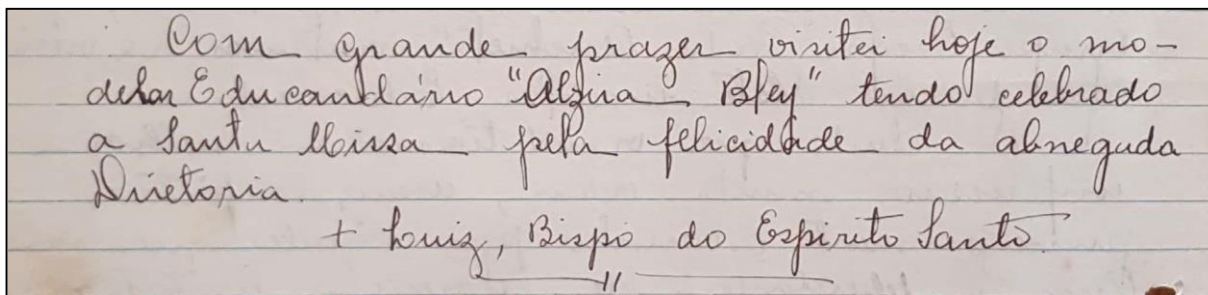 Com grande prazer visitei hoje o mo-
delar Educandário "Alzira Bley" tendo celebrado
a Santa Missa pela felicidade da abnegada
Diretoria.
+ Luiz, Bispo do Espirito Santo.